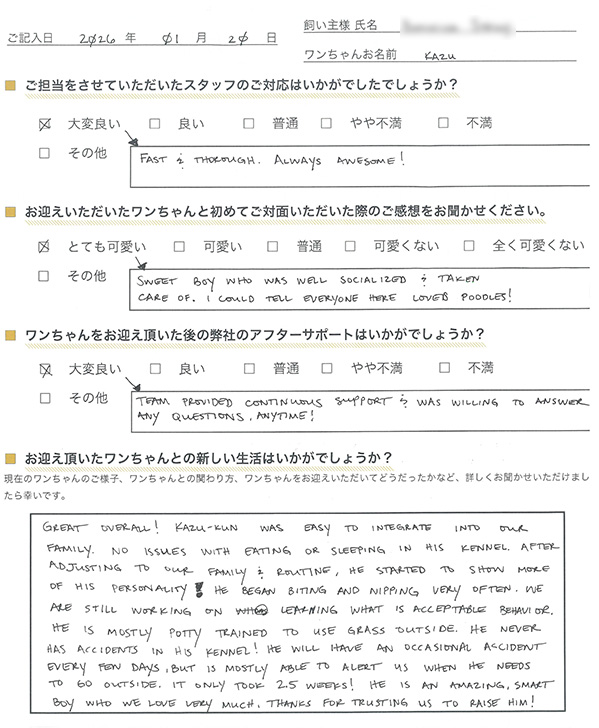 ご記入日 2026 年 01 月 20 日
飼い主様 氏名
ワンちゃんお名前 KAZU
ご担当をさせていただいたスタッフのご対応はいかがでしたでしょうか？
大変良い 良い 普通 やや不満 不満
その他 FAST & THOROUGH. ALWAYS AWESOME!
お迎えいただいたワンちゃんと初めてご対面いただいた際のご感想をお聞かせください。
とても可愛い 可愛い 普通 可愛くない 全く可愛くない
その他 SWEET BOY WHO WAS WELL SOCIALIZED & TAKEN
CARE OF. I COULD TELL EVERYONE HERE LOVED POODLES!
ワンちゃんをお迎え頂いた後の弊社のアフターサポートはいかがでしょうか？
大変良い 良い 普通 やや不満 不満
その他 TEAM PROVIDED CONTINUOUS SUPPORT & WAS WILLING TO ANSWER
ANY QUESTIONS, ANYTIME!
お迎え頂いたワンちゃんとの新しい生活はいかがでしょうか？
現在のワンちゃんのご様子、ワンちゃんとの関わり方、ワンちゃんをお迎えいただいてどうだったかなど、詳しくお聞かせいただけまし
たら幸いです。
GREAT OVERALL! KAZU-KUN WAS EASY TO INTEGRATE INTO OUR
FAMILY. NO ISSUES WITH EATING OR SLEEPING IN HIS KENNEL. AFTER
ADJUSTING TO OUR FAMILY & ROUTINE, HE STARTED TO SHOW MORE
OF HIS PERSONALITY! HE BEGAN BITING AND NIPPING VERY OFTEN. WE
ARE STILL WORKING ON LEARNING WHAT IS ACCEPTABLE BEHAVIOR.
HE IS MOSTLY POTTY TRAINED TO USE GRASS OUTSIDE. HE NEVER
HAS ACCIDENTS IN HIS KENNEL! HE WILL HAVE AN OCCASIONAL ACCIDENT
EVERY FEW DAYS, BUT IS MOSTLY ABLE TO ALERT US WHEN HE NEEDS
TO GO OUTSIDE. IT ONLY TOOK 2.5 WEEKS! HE IS AN AMAZING, SMART
BOY WHO WE LOVE VERY MUCH. THANKS FOR TRUSTING US TO RAISE HIM!